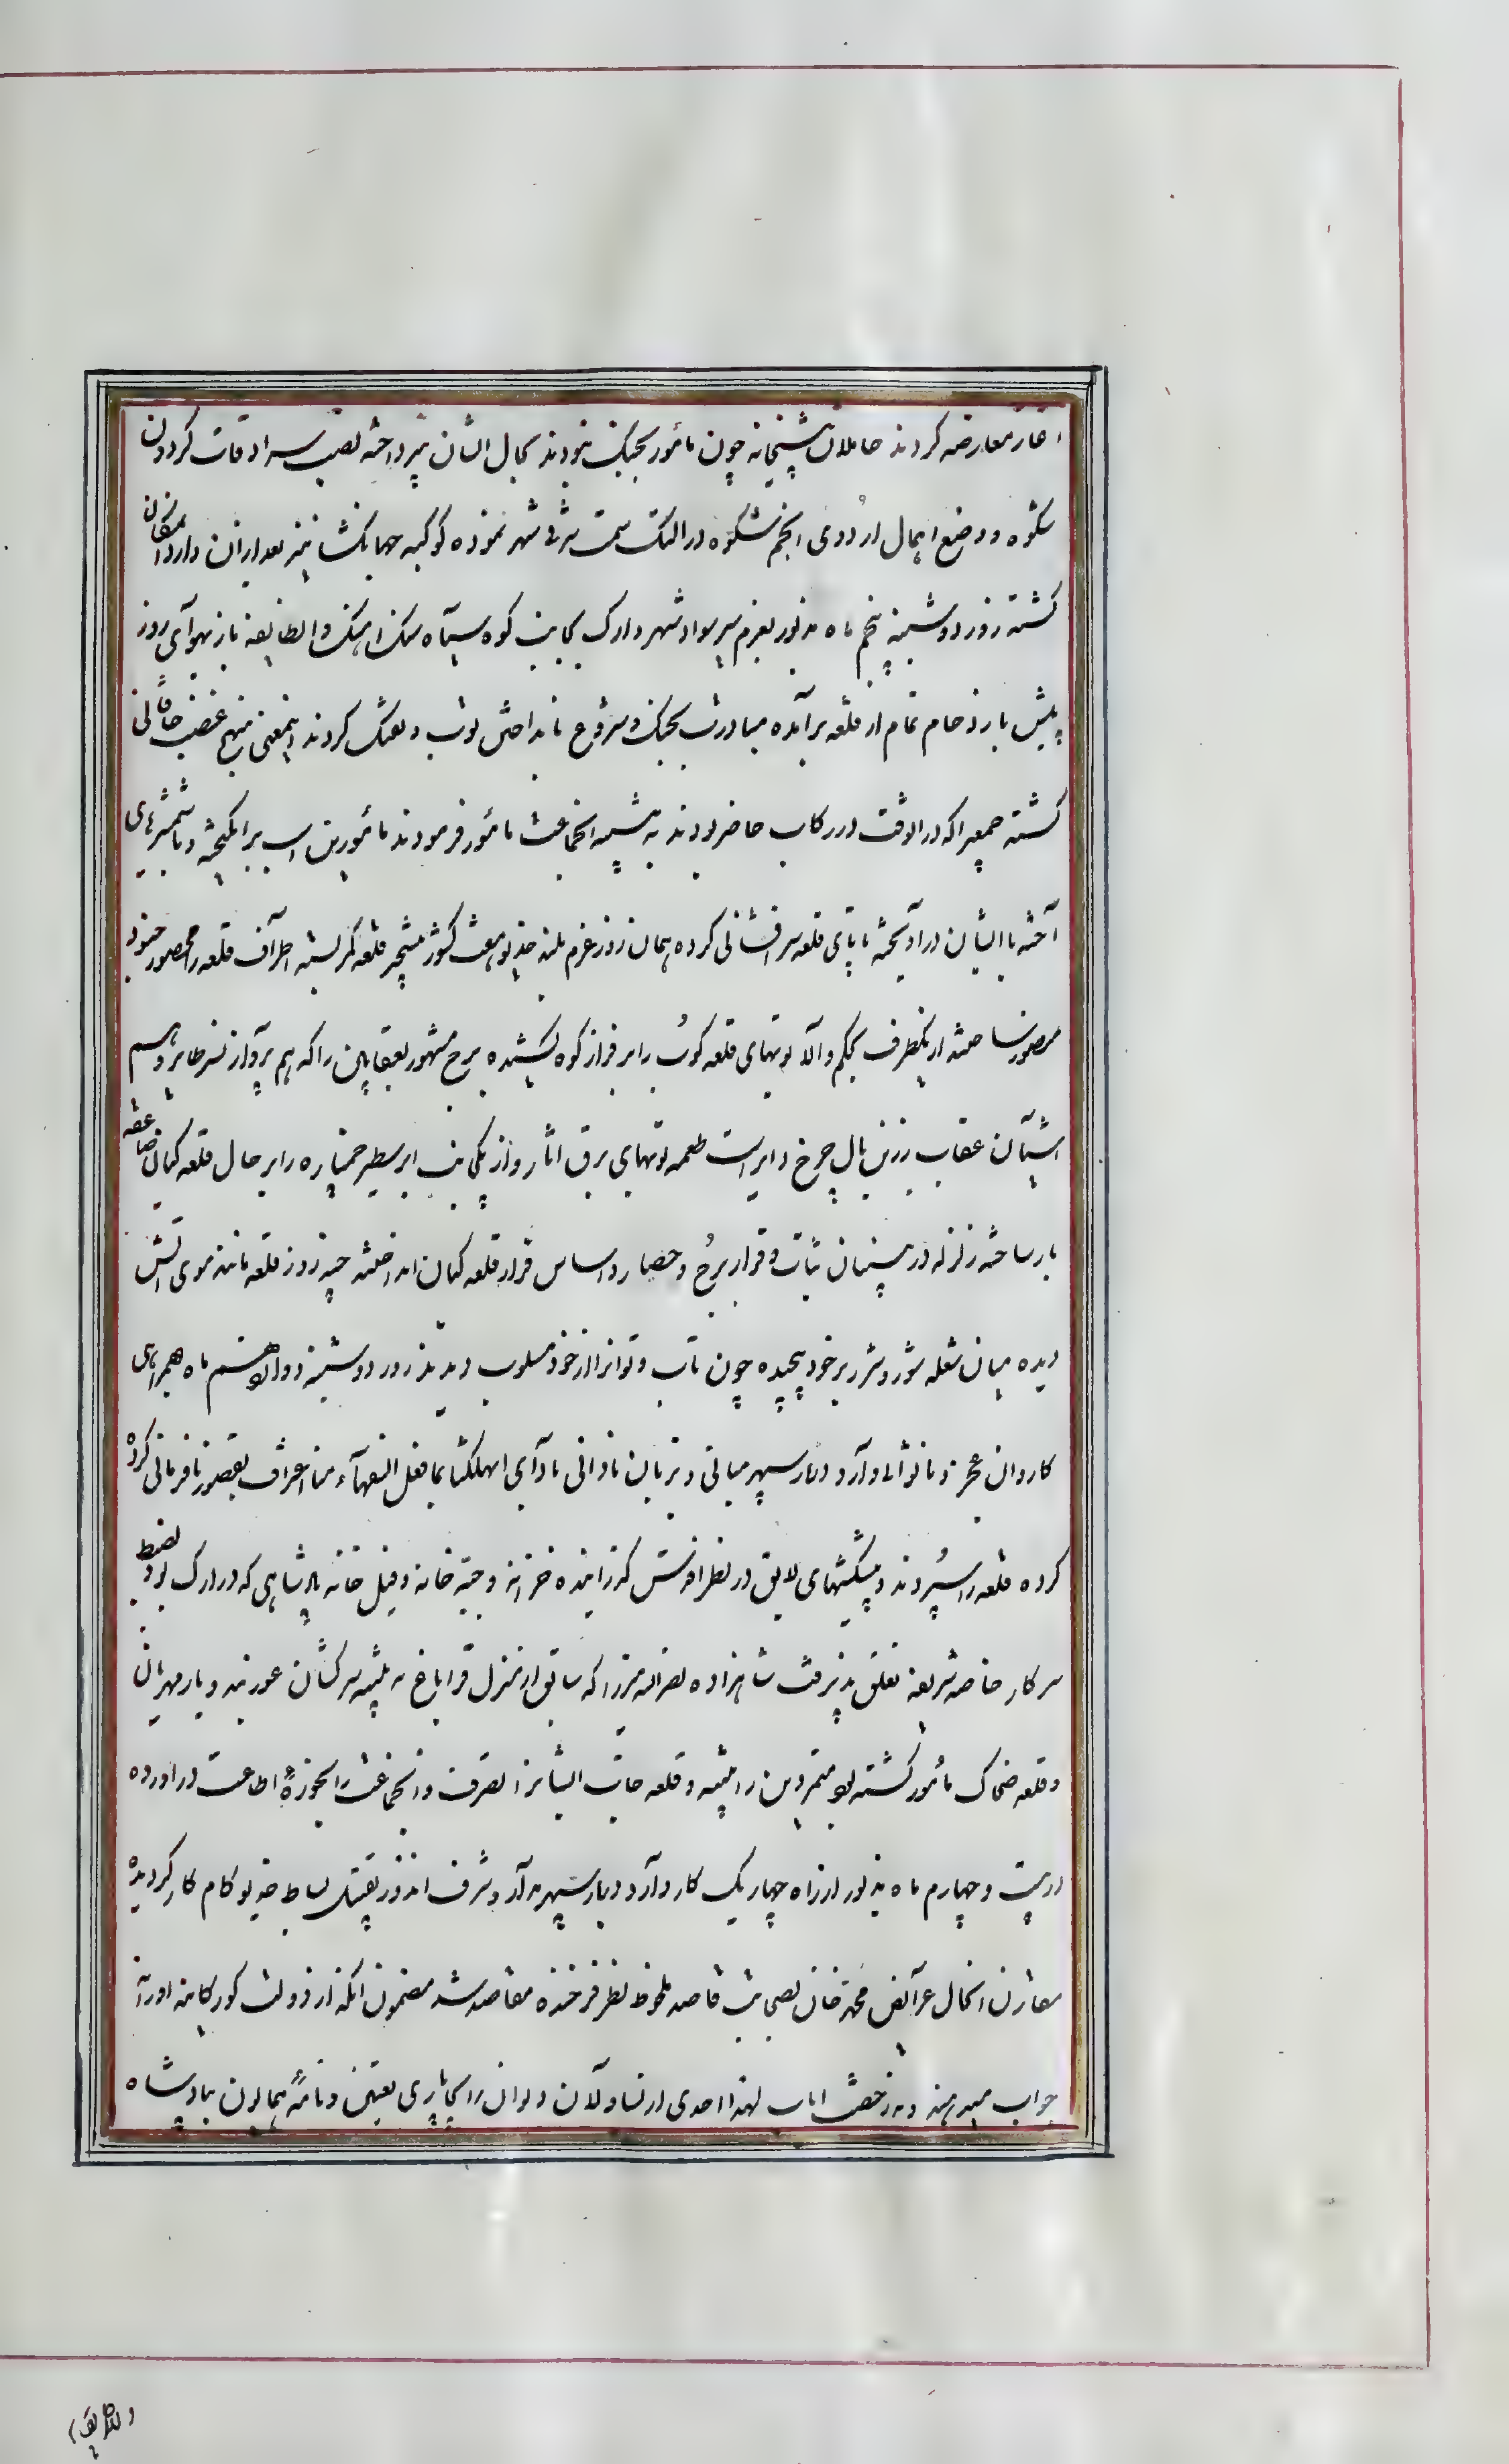 آغاز معارضه کردند حاملان پیشخانه چون مأمور بجنگ نبودند بحال ایشان نپرداخته نصب سرادقات گردون
شکوه و وضع احمال اردوی انجم شکوه در النگ سمت شرقی شهر نموده کوکبه جهانگشا نیز بعد از آن وارد آنمکان
گشته روز دوشنبه پنجم ماه مذبور بعزم سیر سواد شهر و ارک بجانب کوه سیاه سنگ آهنگ و انطایفه باز بهوای روز
پیش بازدحام تمام از قلعه برآمده مبادرت بجنگ و شروع بانداختن توپ و تفنگ کردند اینمعنی مهیج غضب خاقانی
گشته جمعیرا که در انوقت در رکاب حاضر بودند به تنبیه انجماعت مأمور فرمودند مأمورین اسب برانگیخته و با شمشیرهای
آخته با ایشان در آویخته تا پای قلعه سرافشانی کرده همان روز عزم بلند خدیو هفت کشور بتسخیر قلعه کمر بسته اطراف قلعه را محصور جنود
منصور ساخته از یکطرف بحکم والا توپهای قلعه کوب را بر فراز کوه کشیده برج مشهور بعقابین را که هم پرواز نسر طایر و هم
آشیان عقاب زرین بال چرخ دایر است طعمه توپهای برق آثار و از یکجانب ابر سطبر خمپاره را بر حال قلعه کیان صاعقه
بار ساخته زلزله در بنیان ثبات و قرار برج و حصار و اساس قرار قلعه کیان انداختند چند روز قلعه مانند موی آتش
دیده میان شعله شور و شرر بر خود پیچیده چون تاب و توانرا از خود مسلوب دیدند روز دوشنبه دوازدهم ماه همراهی
کاروان عجز و ناتوانی وارد دربار سپهر مبانی و بزبان نادانی نادای اتهلکنا بما فعل السفهاء منا اعتراف بقصور نافرمانی کرده
کرده قلعه را سپردند و پیشکشهای لایق در نظر اقدس گذرانیده خزانه و جبّه خانه و فیل خانه پادشاهی که در ارک بود بضبط
سرکار خاصه شریفه تعلق پذیرفت شاهزاده نصرالله میرزا که سابق از منزل قراباغ به تنبیه سرکشان غوربند و بامیان
و قلعه ضحاک مأمور گشته بود متمردین را تنبیه و قلعه جات ایشانرا تصرف و انجماعت را بحوزهٔ اطاعت در آورده
در بیست و چهارم ماه مذبور از راه چهاریک کار وارد دربار سپهر مدار و شرف اندوز تقبیل بساط خدیو کامکار گردیده
مقارن انحال عرایض محمد خان بصحابت قاصد ملحوظ نظر فرخنده مقاصد شد مضمون آنکه از دولت گورکانیه او را نه
جواب میدهند و نه رخصت ایاب لهذا احدی از یساولان دیوان را بچاپاری تعیین و نامهٔ همایون بپادشاه